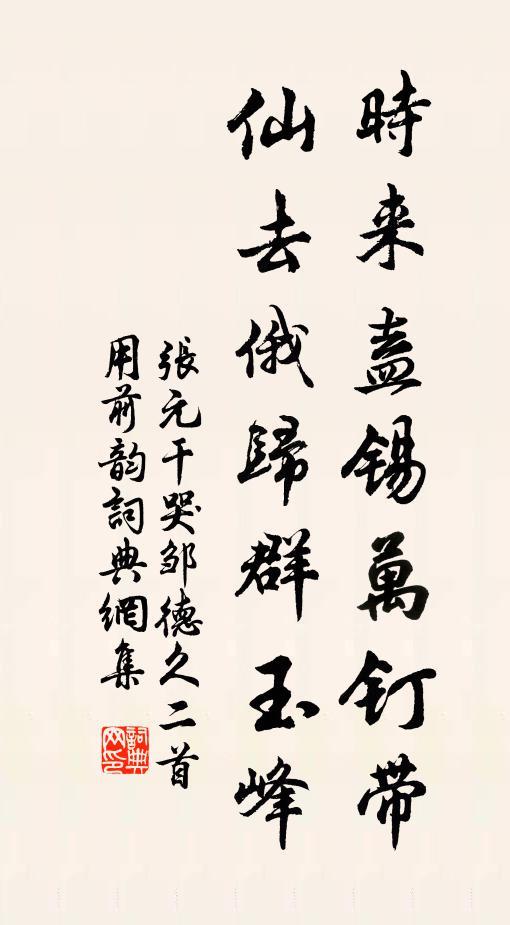 時来盍錫萬釘帶
仙去俄歸群玉峰
張元干哭邹德久二首
用前韵詞典網集
詞典网印